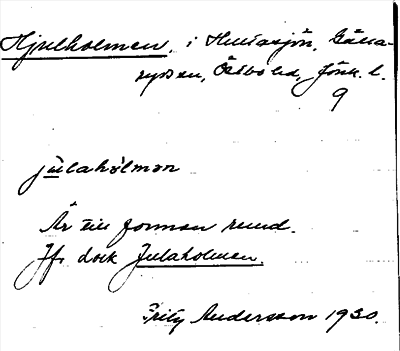 Hjulholmen, i Hultasjön, Gälla-
ryds sn, Östbo hd, Jönk. l.
9
julahålmən
Är till formen rund.
Jfr dock Julaholmen.
Fritz Andersson 1930.